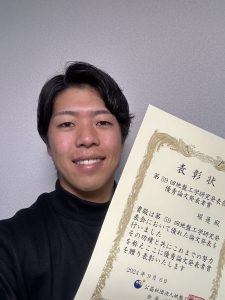 表彰状
第59回地盤工学研究発表会
優秀論文発表者賞
堀 蓮 殿
貴殿は第 59 回地盤工学研究発
表会において優れた論文発表を
行いました
その功績と共にこれまでの努力
を称えここに優秀論文発表者賞
を贈り表彰いたします
2024年9月6
公益社団法人地盤